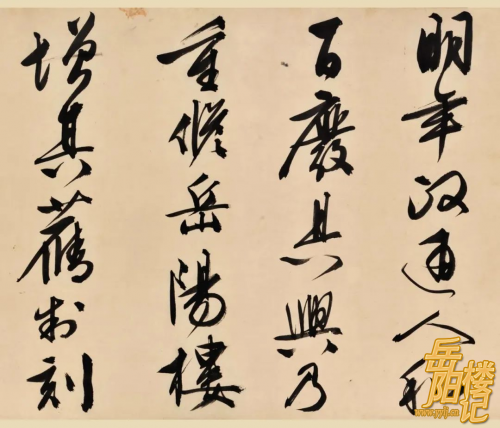 明年政通人和
百廢具興乃
重修岳陽樓
增其舊制刻
岳阳楼记
www.yylj.cn